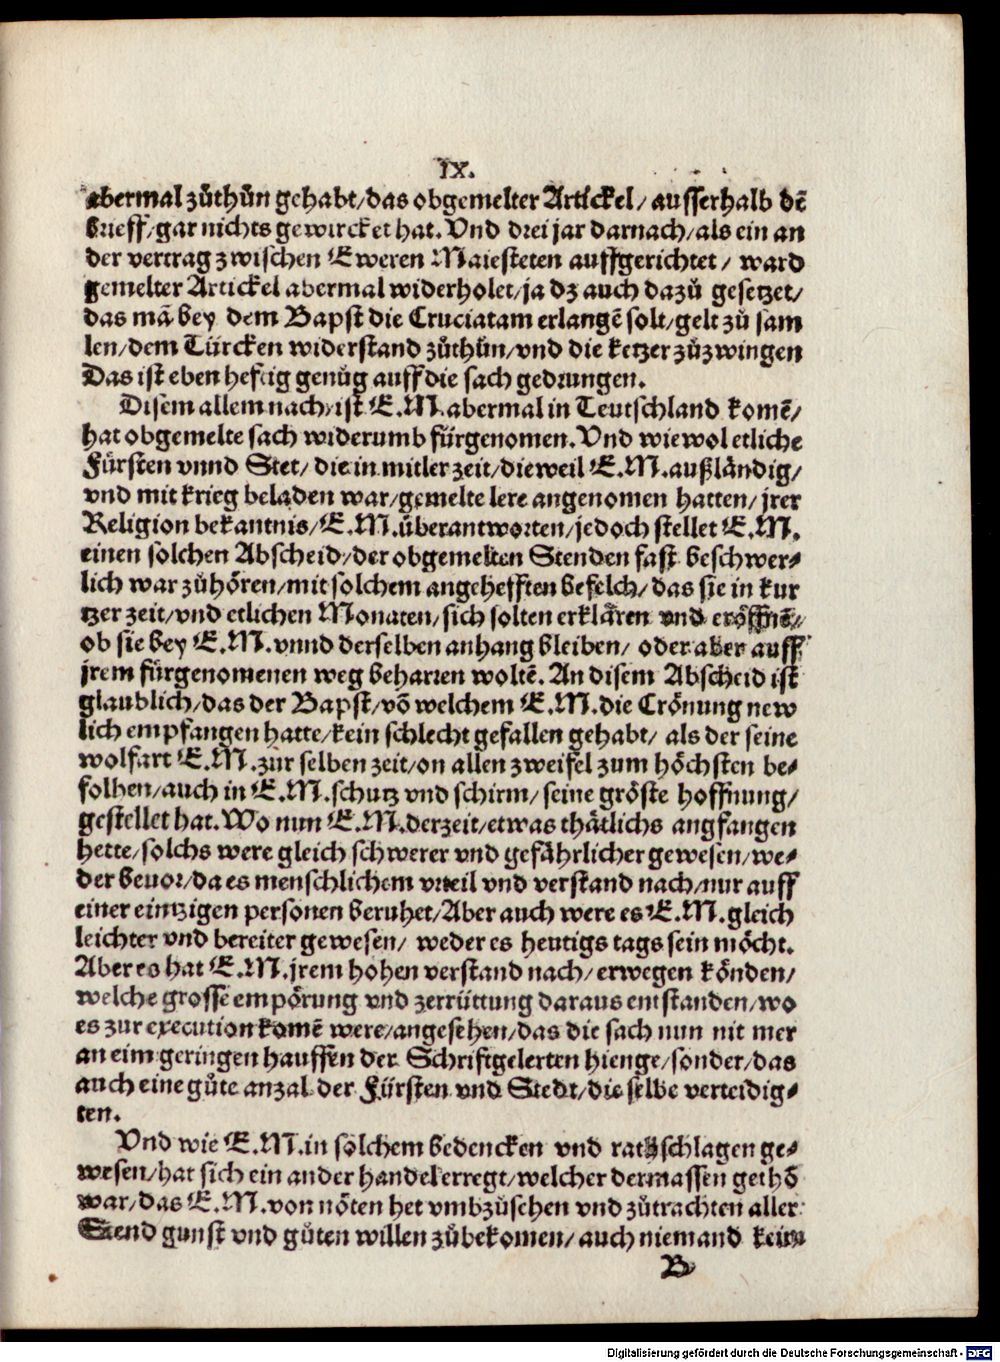 IX.
abermal zůthůn gehabt/das obgemelter Artickel/ ausserhalb dẽ
brieff/gar nichts gewircket hat. Vnd drei jar darnach/als ein an
der vertrag zwischen Eweren Maiesteten auffgerichtet/ ward
gemelter Artickel abermal widerholet/ja dz auch dazů gesetzet/
das mã bey dem Bapst die Cruciatam erlangẽ solt/gelt zů sam
len/dem Türcken widerstand zůthůn/vnd die ketzer zůzwingen
Das ist eben hefftig genůg auff die sach gedrungen.
Disem allem nach/ist E.M.abermal in Teutschland komẽ/
hat obgemelte sach widerumb fürgenomen.Vnd wiewol etliche
Fürsten vnnd Stet/die in mitler zeit/dieweil E.M.außländig/
vnd mit krieg beladen war/gemelte lere angenomen hatten/jrer
Religion bekantnis/E.M.überantworten/jedoch stellet E.M.
einen solchen Abscheid/der obgemelten Stenden fast beschwer⸗
lich war zůhören/mit solchem angehefften befelch/das sie in kur
tzer zeit/vnd etlichen Monaten/sich solten erklären vnd eröffnẽ/
ob sie bey E.M.vnnd derselben anhang bleiben/ oder aber auff
jrem fürgenomenen weg beharren woltẽ.An disem Abscheid ist
glaublich/das der Bapst/võ welchem E.M.die Crönung new
lich empfangen hatte/kein schlecht gefallen gehabt/ als der seine
wolfart E.M.zur selben zeit/on allen zweifel zum höchsten be⸗
folhen/auch in E.M.schutz vnd schirm/seine gröste hoffnung/
gestellet hat.Wo nun E.M.derzeit/etwas thätlichs angfangen
hette/solchs were gleich schwerer vnd gefährlicher gewesen/we⸗
der beuor/da es menschlichem vrteil vnd verstand nach/nur auff
einer eintzigen personen beruhet/Aber auch were es E.M.gleich
leichter vnd bereiter gewesen/ weder es heutigs tags sein möcht.
Aber es hat E.M.jrem hohen verstand nach/erwegen könden/
welche grosse empörung vnd zerrüttung daraus entstanden/wo
es zur execution komẽ were/angesehen/das die sach nun nit mer
an eim geringen hauffen der Schriftgelerten hienge/sonder/das
auch eine gůte anzal der Fürsten vnd Stedt/die selbe verteidig⸗
ten.
Vnd wie E.M.in solchem bedencken vnd rathschlagen ge⸗
wesen/hat sich ein ander handel erregt/welcher dermassen gethõ
war/das E.M.von nöten het vmbzůsehen vnd zůtrachten aller
Stend gunst vnd gůten willen zůbekomen/auch niemand kein
B
Digitalisierung gefördert durch die Deutsche Forschungsgemeinschaft - DFG